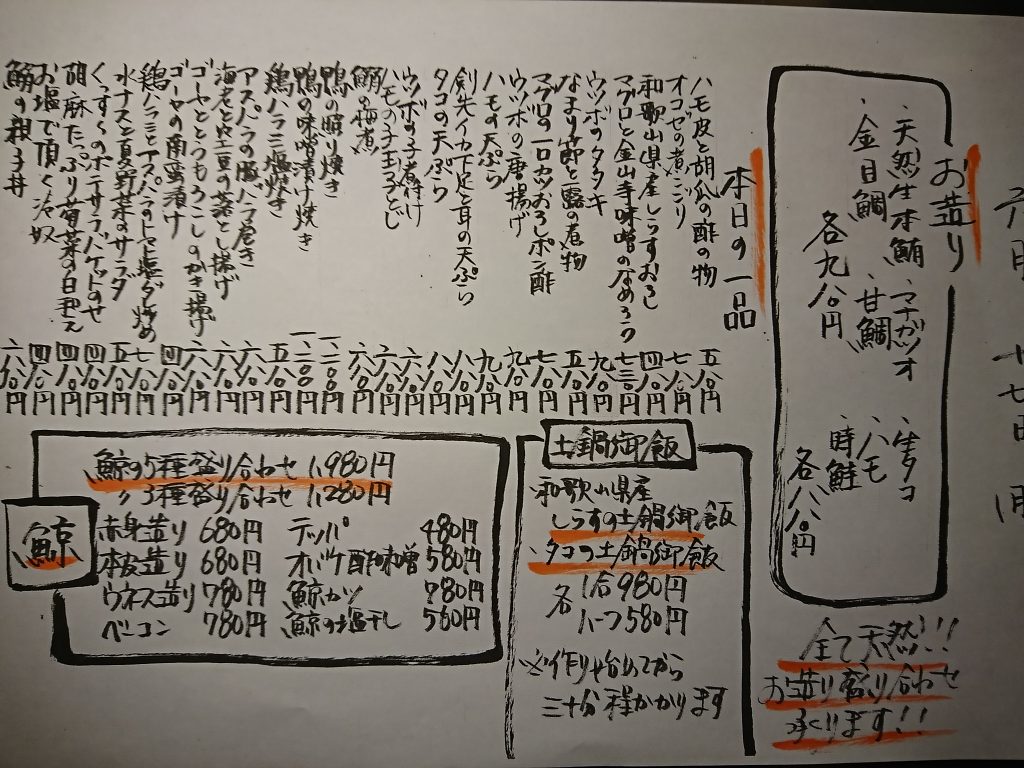 お造り
・天然生本鮪 ・マナガツオ ・生タコ
・金目鯛 ・甘鯛 ・ハモ
・時鮭
各九八〇円
各八八〇円
全て天然!!!
お造り盛り合わせ
承ります!!
本日の一品
ハモ皮と胡瓜の酢の物 五八〇円
オコゼの煮こごり 七八〇円
和歌山県産しらすおろし 四八〇円
マグロと金山寺味噌のなめろう 七三〇円
ウツボのタタキ 九八〇円
なまり節と蕗の煮物 五八〇円
マグロの一口カツおろしポン酢 七八〇円
ウツボの唐揚げ 九八〇円
ハモの天ぷら 九八〇円
剣先イカ下足と耳の天ぷら 八八〇円
タコの天ぷら 八八〇円
ウツボの子煮付け 六八〇円
ハモの子玉子とじ 六八〇円
鰯の梅煮 六八〇円
鴨の照り焼き 一二〇〇円
鴨の味噌漬け焼き 一二〇〇円
鶏ハラミ塩焼き 五八〇円
アスパラの豚バラ巻き 六八〇円
海老と空豆の落とし揚げ 六八〇円
ゴーヤととうもろこしのかき揚げ 六八〇円
ゴーヤの南蛮漬け 四八〇円
鶏ハラミとアスパラのトマト塩ダレ炒め 七八〇円
水ナスと夏野菜のサラダ 五八〇円
くっすぐのポテサラ、バケットのせ 四八〇円
胡麻たっぷり菊菜の白和え 四八〇円
お塩で頂く冷奴 四八〇円
鯨の親子丼 六八〇円
土鍋御飯
・和歌山県産
しらすの土鍋御飯
・タコの土鍋御飯
各 1合980円
ハーフ580円
※作り始めてから
三十分程かかります
鯨
鯨の5種盛り合わせ 1,980円
〃 3種盛り合わせ 1,280円
赤身造り 680円
本皮造り 680円
ウネス造り 780円
ベーコン 780円
テッパ 480円
オバケ酢味噌 580円
鯨カツ 780円
鯨の塩干し 560円